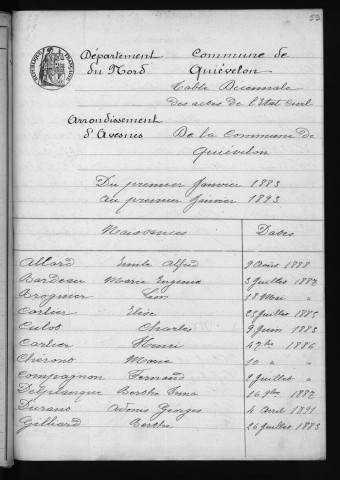 53
Département
du Nord
Commune de
Quiévelon
Table Décennale
des actes de l'Etat Civil
Arrondissement
d'Avesnes
De la Commune de
Quiévelon
Du premier Janvier 1883
au premier Janvier 1893
Naissances Dates
Allard Emile Alfred 9 Août 1888
Bardeau Marie Eugénie 3 Juillet 1887
Brognier Léon 18 Mai "
Carlier Elise 25 Juillet 1885
Culot Charles 9 Juin 1883
Carlier Henri 1886
Marie 10 "
Compagnon Fernand 2 Juillet "
Delplanque Berthe 16 1887
Durand Adonis Georges 4 Avril 1891
Gilliard Berthe 26 Juillet 1883